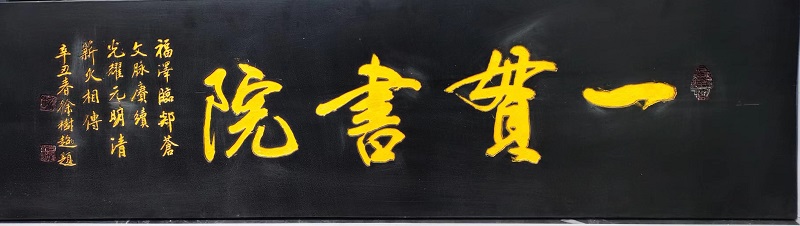 一貫書院
福澤臨郯蒼
文脉賡續
光耀元明清
薪火相傳
辛丑春徐樹 題